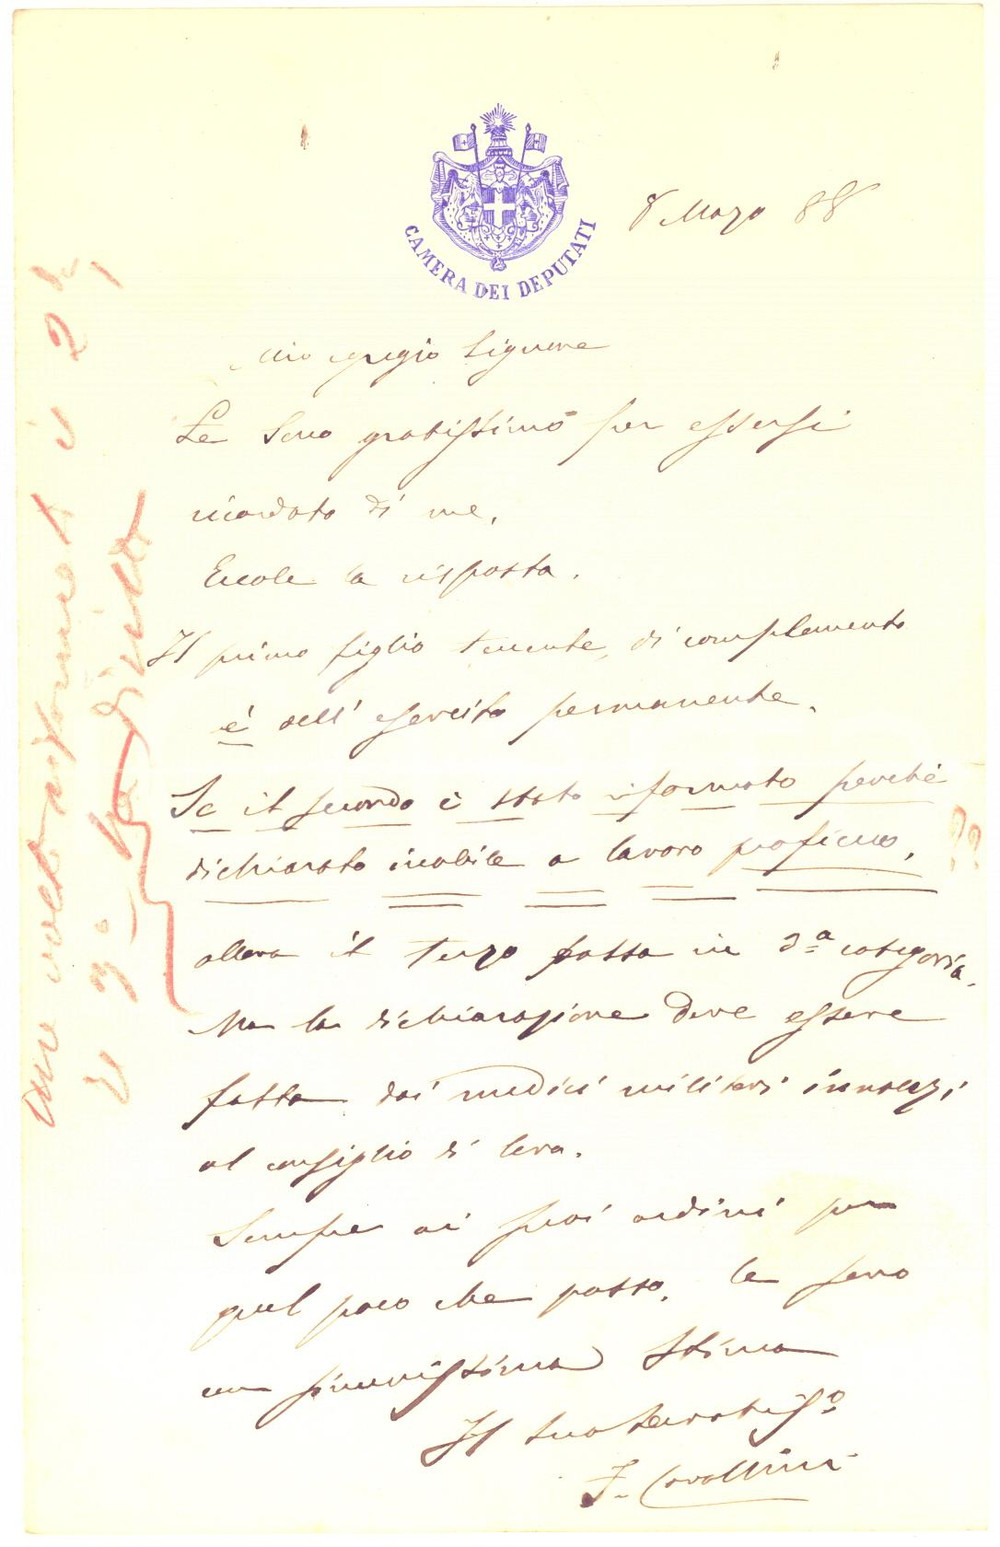 CAMERA DEI DEPUTATI
8 Marzo 88
Mio egregio Signore
Le sono gratissimo per essersi
ricordato di me.
Eccole la risposta.
Il primo figlio tenente, di complemento
è dell' esercito permanente.
Se il secondo è stato riformato perchè
dichiarato inabile a lavoro proficuo,
allora il terzo passa in 3ª categoria.
Ma la dichiarazione deve essere
fatta dai medici militari innanzi
al consiglio di leva.
Sempre ai suoi ordini per
quel poco che posso, le sono
con sincerissima stima
Il suo devotissº
F. Cavallini
una volta riformato il 2º
il 3º ha diritto
??